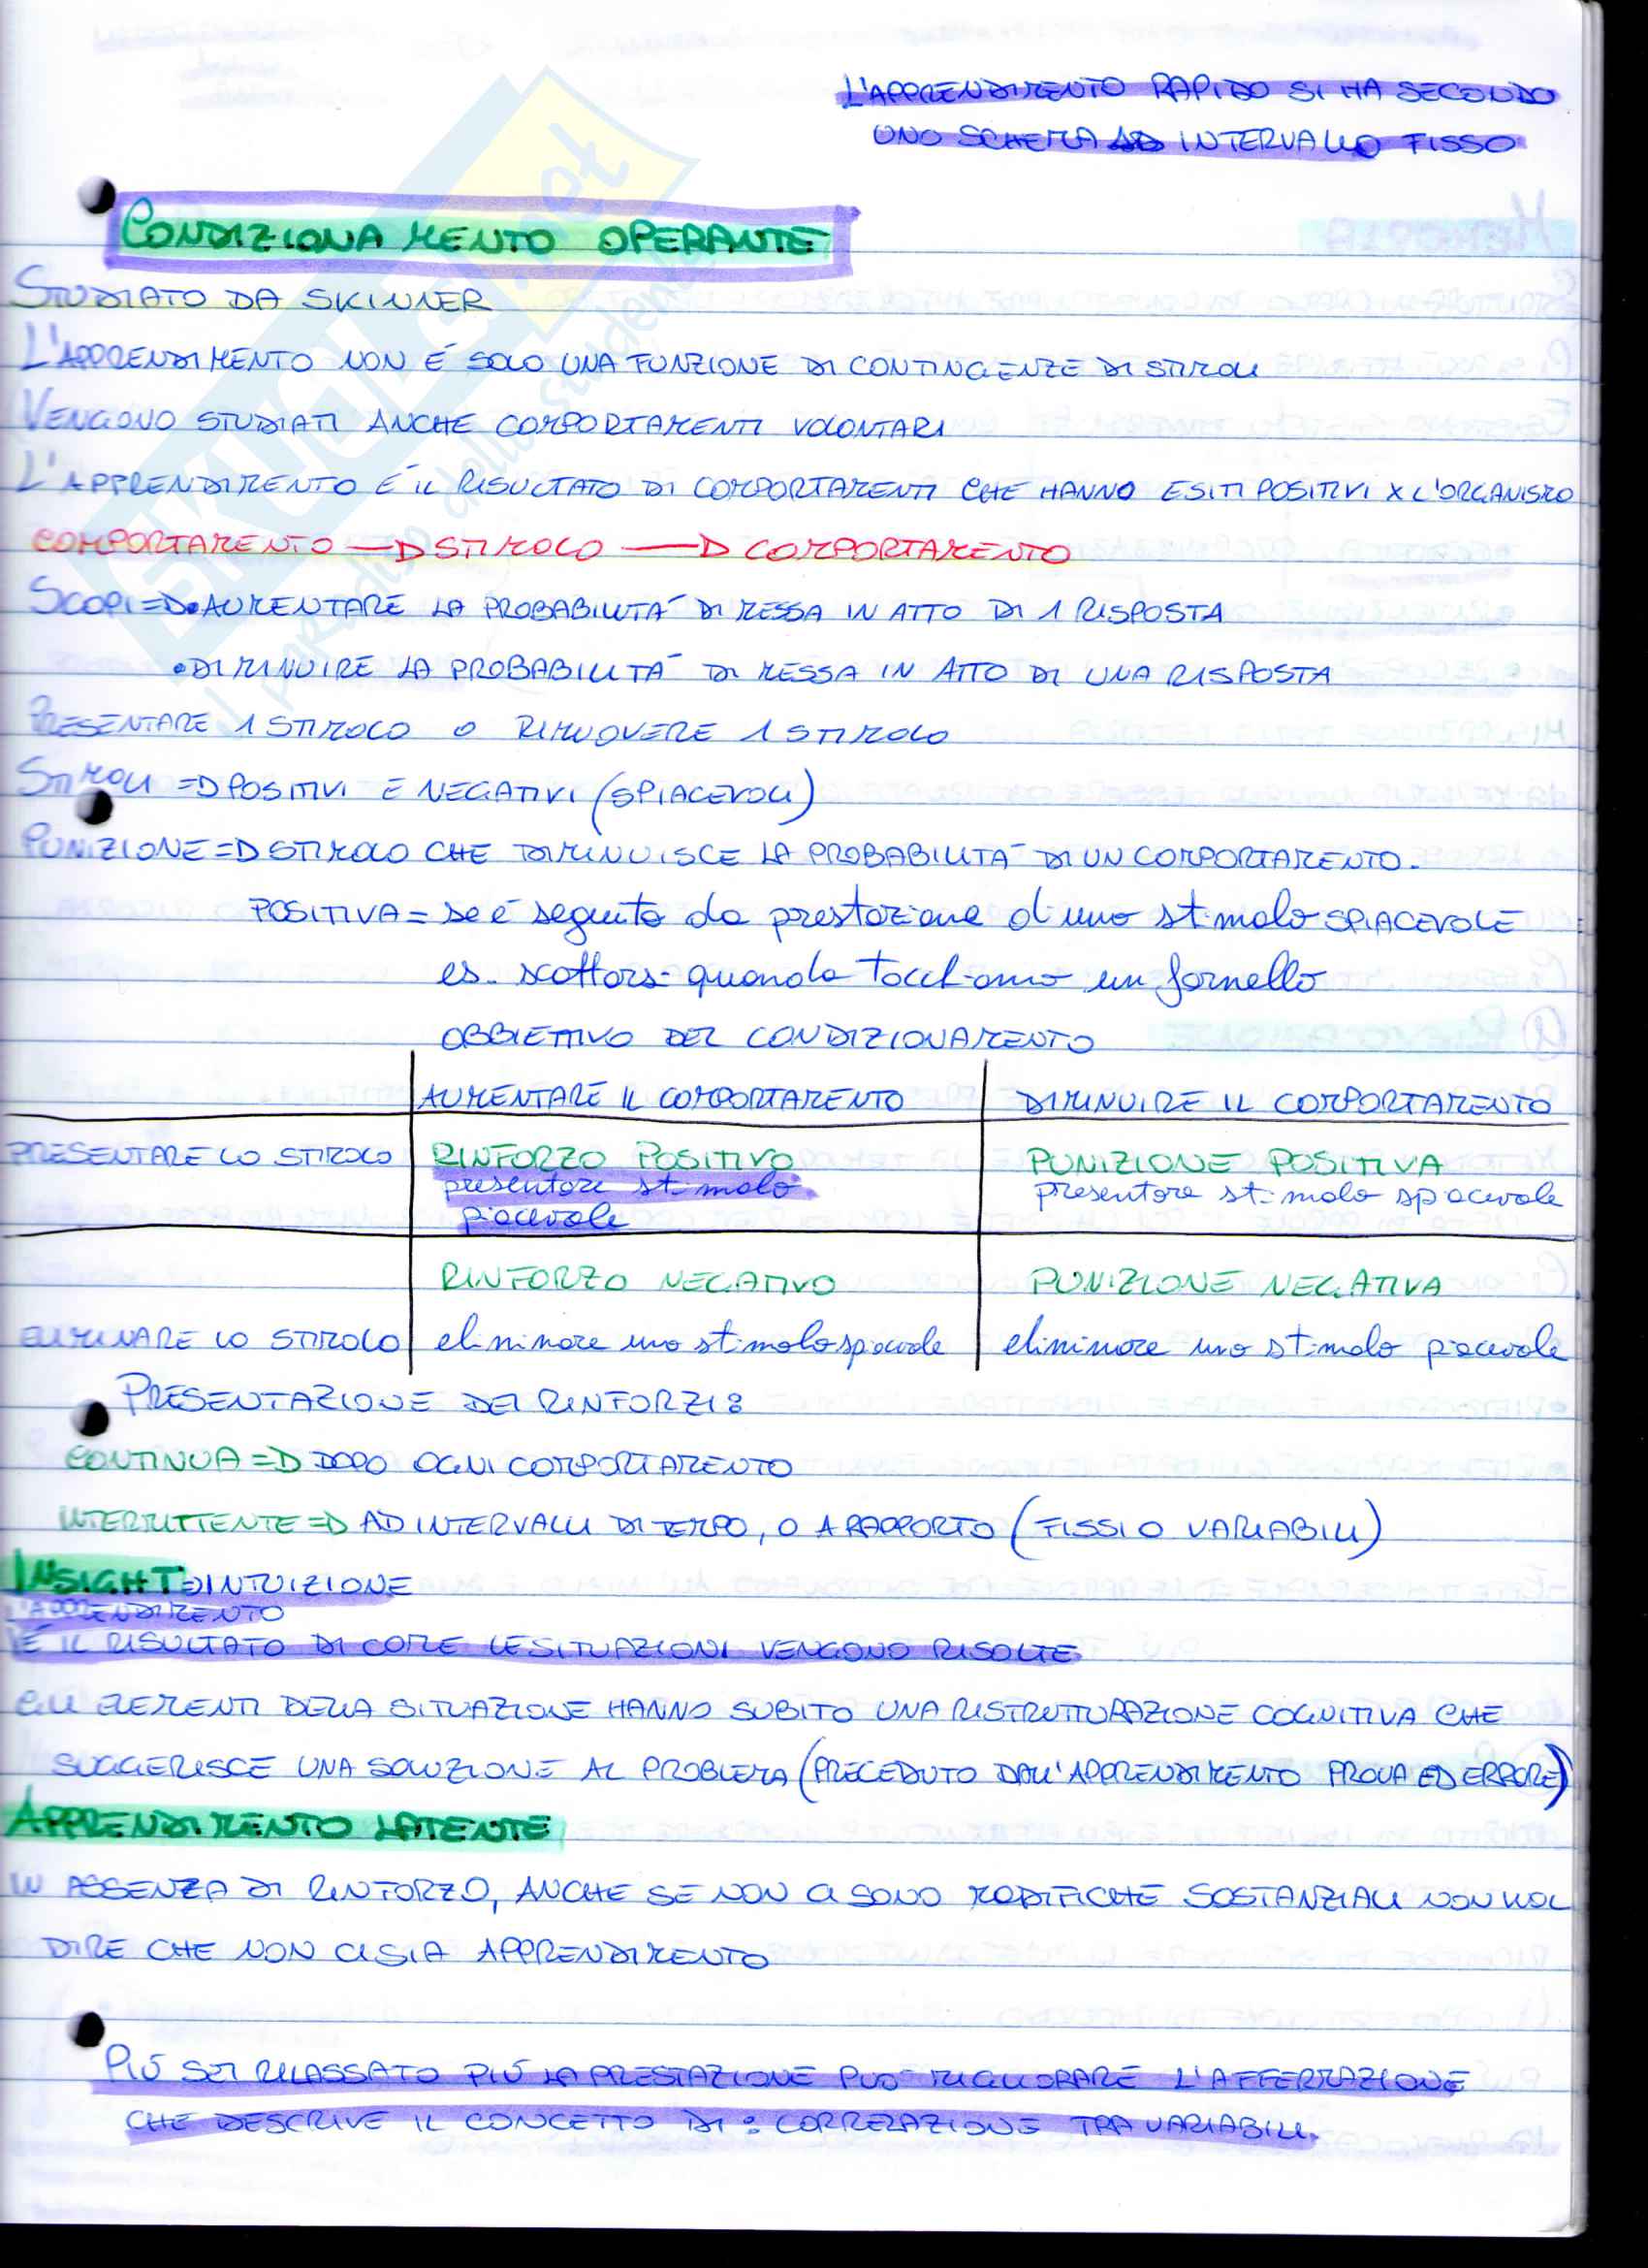 L'APPRENDIMENTO RAPIDO SI HA SECONDO
UNO SCHEMA AD INTERVALLO FISSO
CONDIZIONAMENTO OPERANTE
STUDIATO DA SKINNER
L'APPRENDIMENTO NON É SOLO UNA FUNZIONE DI CONTINGENZE DI STIMOLI
VENGONO STUDIATI ANCHE COMPORTAMENTI VOLONTARI
L'APPRENDIMENTO É IL RISULTATO DI COMPORTAMENTI CHE HANNO ESITI POSITIVI X L'ORGANISMO
COMPORTAMENTO → STIMOLO → COMPORTAMENTO
SCOPI ⇒ • AUMENTARE LA PROBABILITÁ DI MESSA IN ATTO DI 1 RISPOSTA
• DIMINUIRE LA PROBABILITÁ DI MESSA IN ATTO DI UNA RISPOSTA
PRESENTARE 1 STIMOLO O RIMUOVERE 1 STIMOLO
STIMOLI ⇒ POSITIVI E NEGATIVI (SPIACEVOLI)
PUNIZIONE ⇒ STIMOLO CHE DIMINUISCE LA PROBABILITÁ DI UN COMPORTAMENTO.
POSITIVA = se é seguito da prestazione di uno stimolo SPIACEVOLE
es. scottarsi quando tocchiamo un fornello
OBBIETTIVO DEL CONDIZIONAMENTO
AUMENTARE IL COMPORTAMENTO DIMINUIRE IL COMPORTAMENTO
PRESENTARE LO STIMOLO RINFORZO POSITIVO PUNIZIONE POSITIVA
presentare stimolo presentare stimolo spiacevole
piacevole
RINFORZO NEGATIVO PUNIZIONE NEGATIVA
ELIMINARE LO STIMOLO eliminare uno stimolo spiacevole eliminare uno stimolo piacevole
PRESENTAZIONE DEI RINFORZI:
CONTINUA ⇒ DOPO OGNI COMPORTAMENTO
INTERMITTENTE ⇒ AD INTERVALLI DI TEMPO, O A RAPPORTO (FISSI O VARIABILI)
INSIGHT: INTUIZIONE
L'APPRENDIMENTO
É IL RISULTATO DI COME LE SITUAZIONI VENGONO RISOLTE
GLI ELEMENTI DELLA SITUAZIONE HANNO SUBITO UNA RISTRUTTURAZIONE COGNITIVA CHE
SUGGERISCE UNA SOLUZIONE AL PROBLEMA (PRECEDUTO DALL'APPRENDIMENTO PROVA ED ERRORE)
APPRENDIMENTO LATENTE
IN ASSENZA DI RINFORZO, ANCHE SE NON CI SONO MODIFICHE SOSTANZIALI NON VUOL
DIRE CHE NON CI SIA APPRENDIMENTO
PIÚ SEI RILASSATO PIÚ LA PRESTAZIONE PUÓ MIGLIORARE L'AFFERMAZIONE
CHE DESCRIVE IL CONCETTO DI: CORRELAZIONE TRA VARIABILI.
SKUOLA.net
il paradiso dello studente